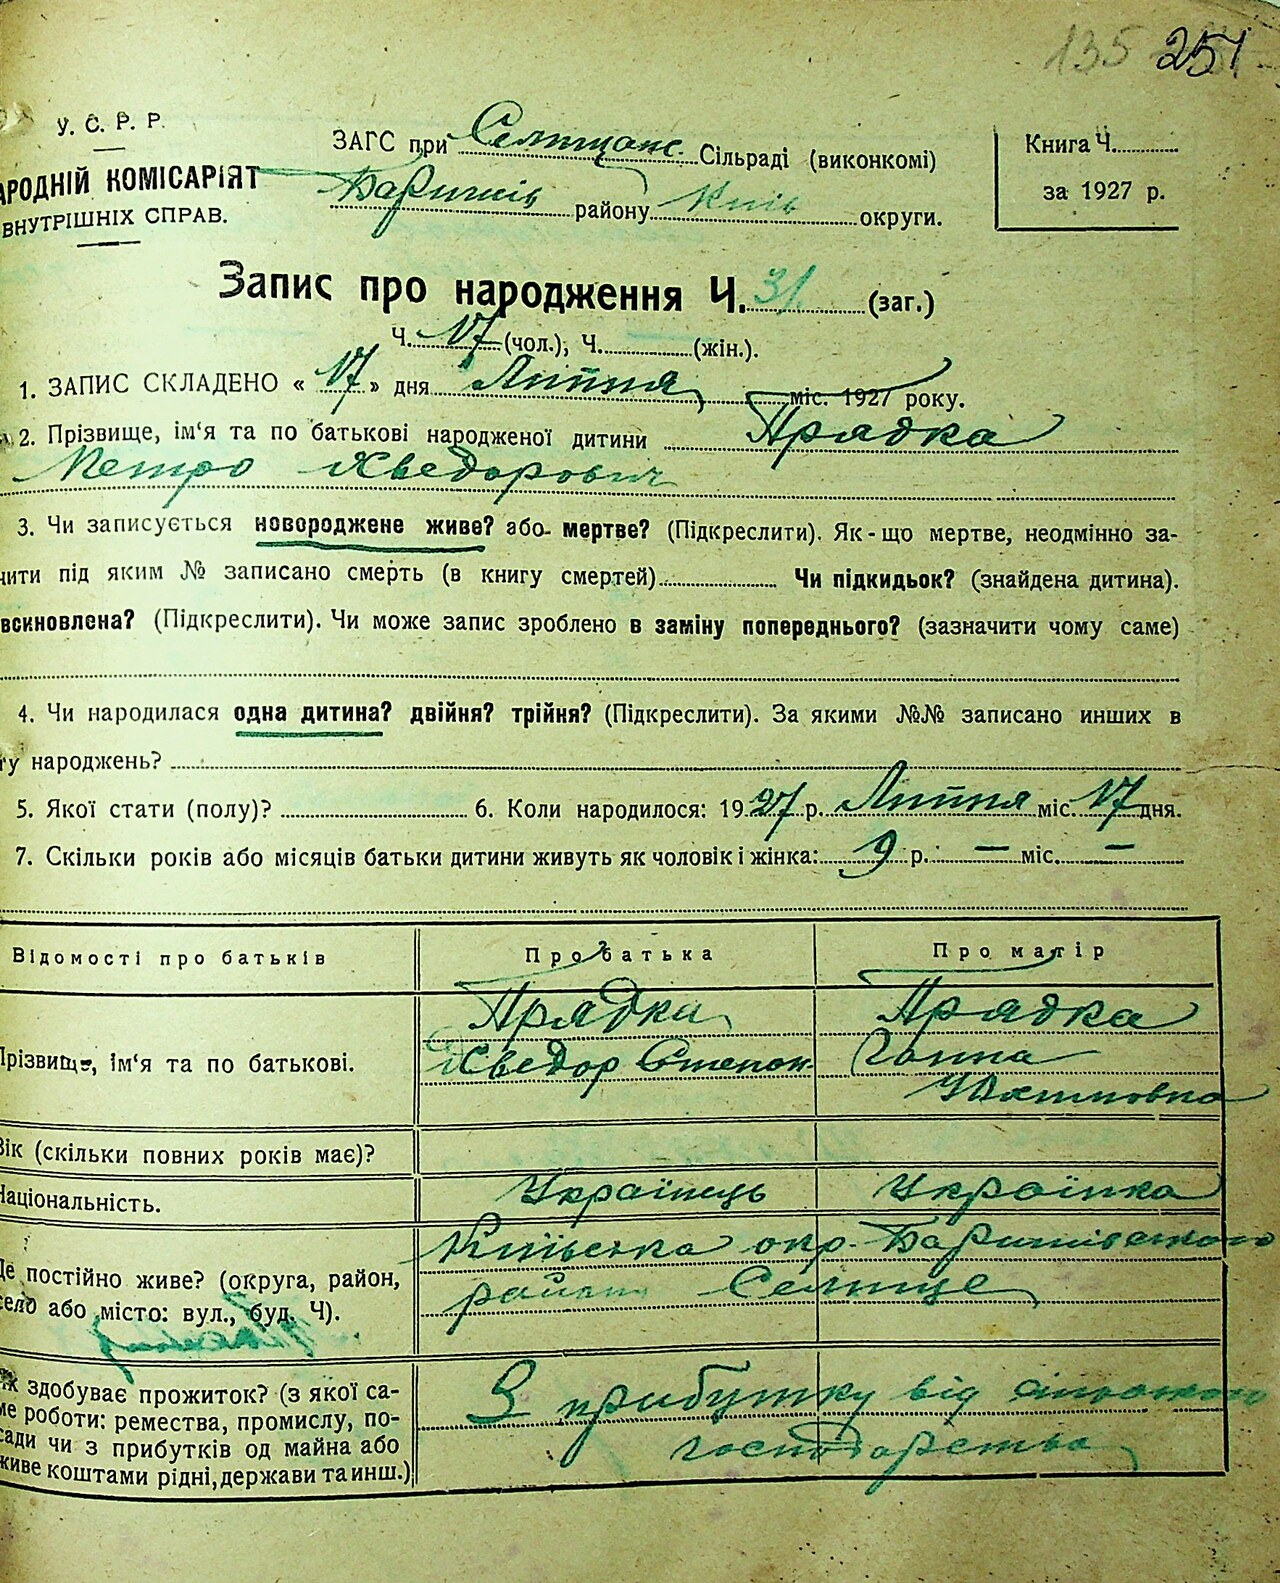 135 251
У. С. Р. Р.
АРОДНІЙ КОМІСАРІЯТ
ВНУТРІШНІХ СПРАВ.
ЗАГС при Селищанс. Сільраді (виконкомі)
Баришів району Київ округи.
Книга Ч.
за 1927 р.
Запис про народження Ч. 31 (заг.)
Ч. 17 (чол.), Ч. (жін.).
1. ЗАПИС СКЛАДЕНО « 17 » дня Липня міс. 1927 року.
2. Прізвище, ім'я та по батькові народженої дитини Прядка
Петро Хведорович
3. Чи записується новороджене живе? або мертве? (Підкреслити). Як-що мертве, неодмінно за-
чити під яким № записано смерть (в книгу смертей) Чи підкидьок? (знайдена дитина).
всиновлена? (Підкреслити). Чи може запис зроблено в заміну попереднього? (зазначити чому саме)
4. Чи народилася одна дитина? двійня? трійня? (Підкреслити). За якими №№ записано инших в
гу народжень?
5. Якої стати (полу)? 6. Коли народилося: 1927 р. Липня міс. 17 дня.
7. Скільки років або місяців батьки дитини живуть як чоловік і жінка: 9 р. — міс. —
Відомості про батьків Про батька Про матір
Прізвище, ім'я та по батькові.
Прядка Прядка
Хведор Степон. Ганна
Юхимовна
Вік (скільки повних років має)?
Національність. Українець Українка
Де постійно живе? (округа, район,
село або місто: вул., буд. Ч).
Київська окр. Баришівського
району Селище
Як здобуває прожиток? (з якої са-
ме роботи: ремества, промислу, по-
сади чи з прибутків од майна або
живе коштами рідні, держави та инш.)
З прибутку від сільського
господарства